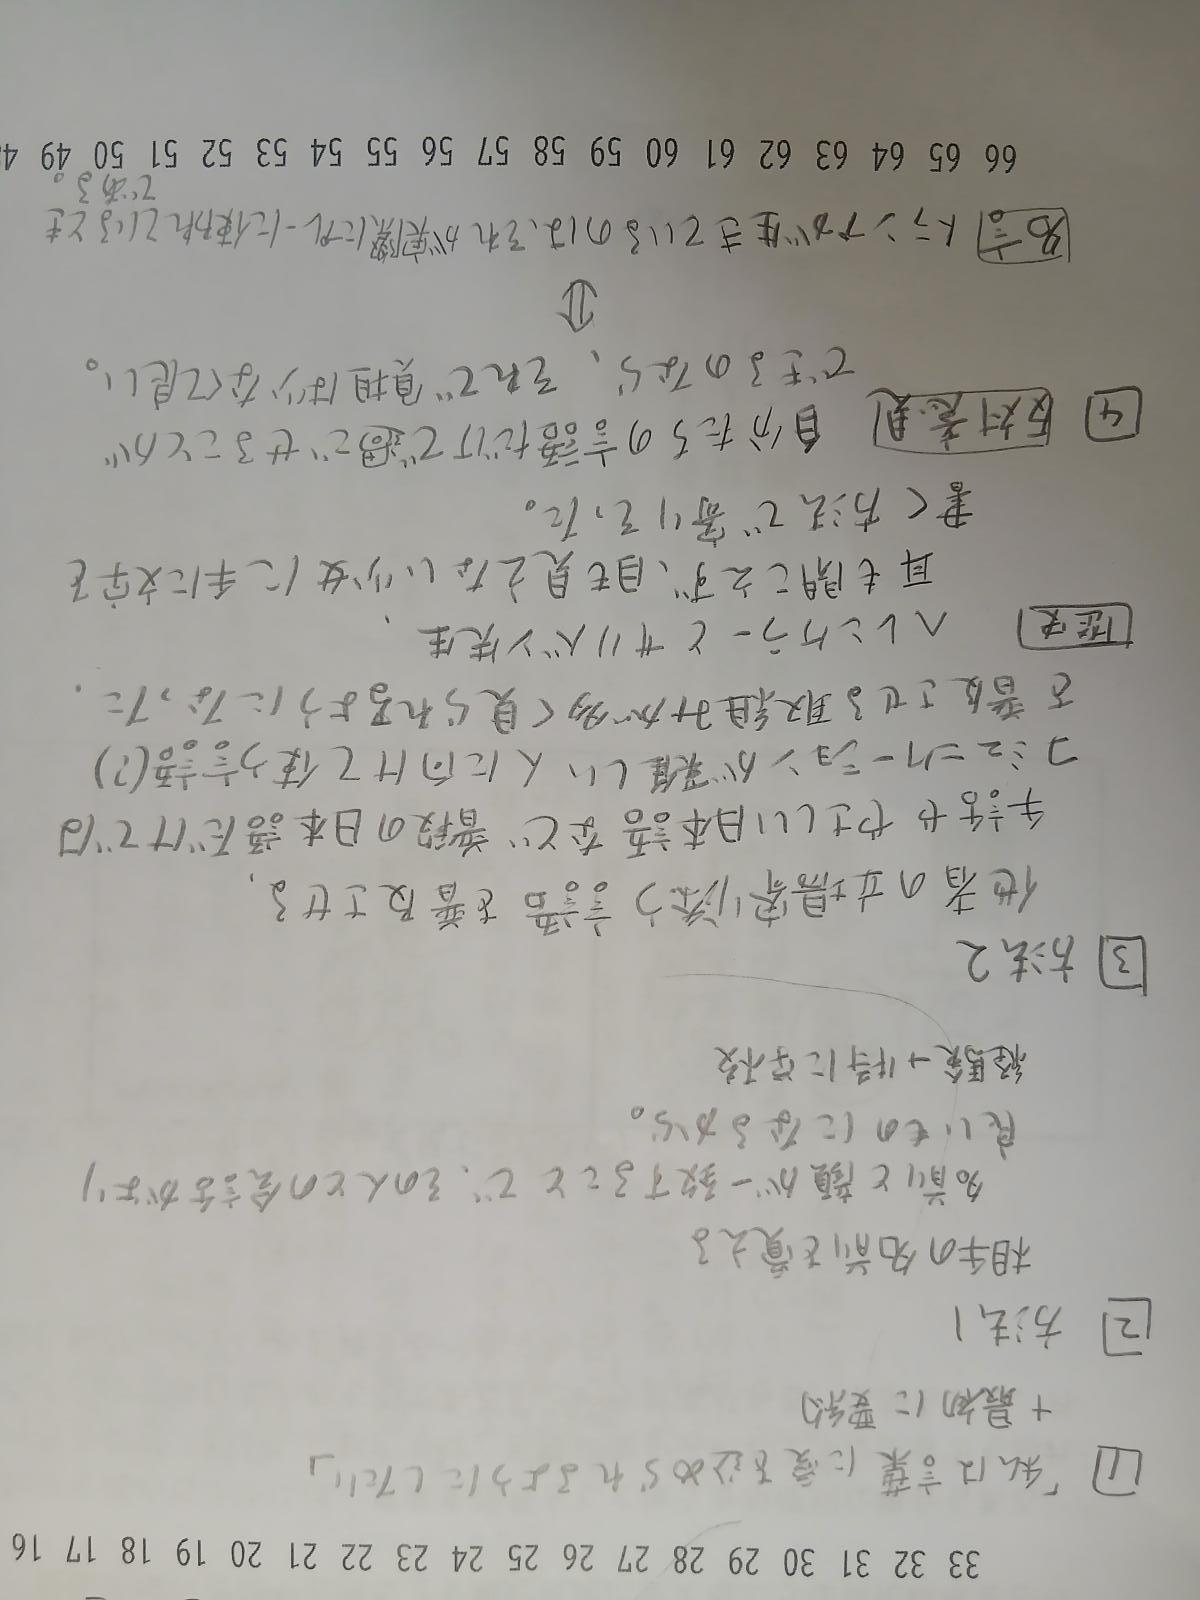 33 32 31 30 29 28 27 26 25 24 23 22 21 20 19 18 17 16
1 「私は言葉に愛を込められるようにしたい」
+ 最初に要約
2 方法1
相手の名前を覚える
名前と顔が一致することで、その人との会話がより
良いものになるから。
経験→特に学校
3 方法2
他者の立場寄り添う言語を普及させる、
手話ややさしい日本語など普段の日本語だけでは
コミュニケーションが難しい人に向けて使う言語(?)
を普及させる取組みが多く見られるようになった.
歴史 ヘレンケラーとサリバン先生
耳も聞こえず、目も見えない少女に手に文字を
書く方法で寄りそった。
4 反対意見 自分たちの言語だけで過ごせることが
できるのなら、それで負担は少なくて良い。
⇕
名言 トランプが生きているのは、それが実際にプレーに使われているとき
である。
66 65 64 63 62 61 60 59 58 57 56 55 54 53 52 51 50 49